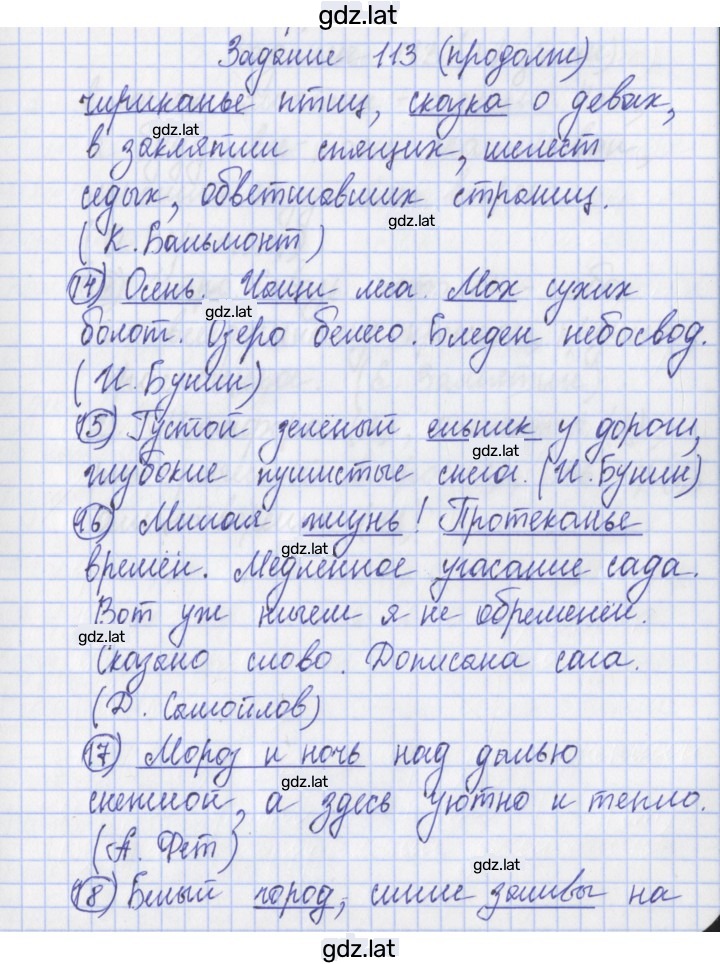 gdz.lat
Задание 113 (продолж)
чириканье птиц, сказка о девах,
gdz.lat
в заклятии спящих, шелест
седых, обветшавших страниц.
gdz.lat
(К. Бальмонт)
14) Осень. Чащи леса. Мох сухих
gdz.lat
болот. Озеро белесо. Бледен небосвод.
(И. Бунин)
15) Густой зелёный ельник у дороги,
gdz.lat
глубокие пушистые снега. (И. Бунин)
16) Милая жизнь! Протеканье
gdz.lat
времён. Медленное угасание сада.
Вот уж ничем я не обременён.
gdz.lat
Сказано слово. Дописана сага.
(Д. Самойлов)
17) Мороз и ночь над далью
gdz.lat
снежной, а здесь уютно и тепло.
(А. Фет)
gdz.lat
18) Белый город, синие заливы на
gdz.lat